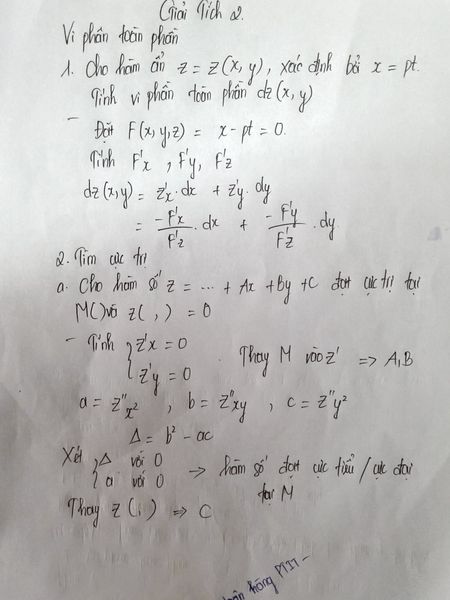 Giải Tích 2.
Vi phân toàn phần
1. Cho hàm ẩn z = z(x, y), xác định bởi x = pt.
Tính vi phân toàn phần dz(x, y)
- Đặt F(x, y, z) = x - pt = 0.
Tính F'x , F'y, F'z
dz(x, y) = z'x . dx + z'y . dy
= -F'x / F'z . dx + -F'y / F'z . dy
2. Tìm cực trị
a. Cho hàm số z = ... + Ax + By + C đạt cực trị tại
M( ) với z( , ) = 0
- Tính { z'x = 0
z'y = 0 Thay M vào z' => A, B
a = z''x² , b = z''xy , c = z''y²
Δ = b² - ac
Xét { Δ với 0
a với 0 → hàm số đạt cực tiểu / cực đại
tại M
Thay z( , ) => C
PTIT -